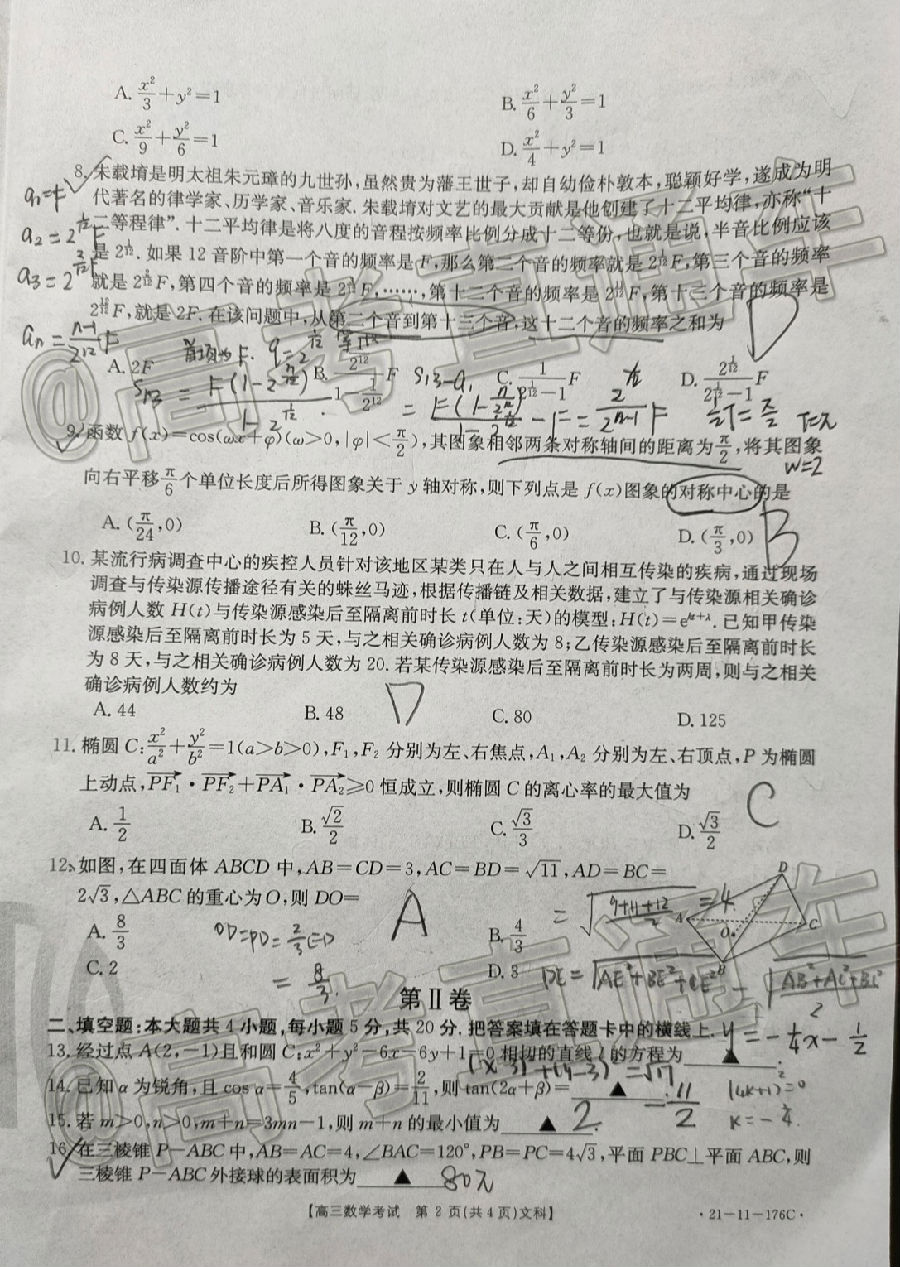 A. x²/3+y²=1
B. x²/6+y²/3=1
C. x²/9+y²/6=1
D. x²/4+y²=1
8. 朱载堉是明太祖朱元璋的九世孙,虽然贵为藩王世子,却自幼俭朴敦本,聪颖好学,遂成为明
代著名的律学家、历学家、音乐家. 朱载堉对文艺的最大贡献是他创建了十二平均律,亦称“十
二等程律”. 十二平均律是将八度的音程按频率比例分成十二等份,也就是说,半音比例应该
是 2^(1/12). 如果 12 音阶中第一个音的频率是 F,那么第二个音的频率就是 2^(1/12)F,第三个音的频率
就是 2^(2/12)F,第四个音的频率是 2^(3/12)F,……,第十二个音的频率是 2^(11/12)F,第十三个音的频率是
2^(12/12)F,就是 2F. 在该问题中,从第二个音到第十三个音,这十二个音的频率之和为
A. 2F
C. 1/(2^(1/12)-1) F
D. 2^(1/12)/(2^(1/12)-1) F
D
9. 函数 f(x)=cos(ωx+φ)(ω>0,|φ|<π/2),其图象相邻两条对称轴间的距离为π/2,将其图象
W=2
向右平移π/6个单位长度后所得图象关于 y 轴对称,则下列点是 f(x)图象的对称中心的是
A. (π/24,0)
B. (π/12,0)
C. (π/6,0)
D. (π/3,0)
B
10. 某流行病调查中心的疾控人员针对该地区某类只在人与人之间相互传染的疾病,通过现场
调查与传染源传播途径有关的蛛丝马迹,根据传播链及相关数据,建立了与传染源相关确诊
病例人数 H(t)与传染源感染后至隔离前时长 t(单位:天)的模型:H(t)=e^(kt+λ). 已知甲传染
源感染后至隔离前时长为 5 天,与之相关确诊病例人数为 8;乙传染源感染后至隔离前时长
为 8 天,与之相关确诊病例人数为 20. 若某传染源感染后至隔离前时长为两周,则与之相关
确诊病例人数约为
D
A. 44
B. 48
C. 80
D. 125
11. 椭圆 C:x²/a²+y²/b²=1(a>b>0),F₁,F₂ 分别为左、右焦点,A₁,A₂ 分别为左、右顶点,P 为椭圆
上动点,PF₁·PF₂+PA₁·PA₂≥0 恒成立,则椭圆 C 的离心率的最大值为
C
A. 1/2
B. √2/2
C. √3/3
D. √3/2
12. 如图,在四面体 ABCD 中,AB=CD=3,AC=BD=√11,AD=BC=
2√3,△ABC 的重心为O,则 DO=
A
A. 8/3
B. 4/3
C. 2
D. 3
=√((9+11+12)/2)=4
= 8/3.
D
A
C
O
B
第Ⅱ卷
二、填空题:本大题共 4 小题,每小题 5 分,共 20 分. 把答案填在答题卡中的横线上.
y=-1/4x-1/2
13. 经过点 A(2,-1)且和圆 C:x²+y²-6x-6y+1=0 相切的直线 l 的方程为 ▲ .
14. 已知 α 为锐角,且 cos α=4/5,tan(α-β)=2/11,则 tan(2α+β)= ▲ .
2
-11/2
15. 若 m>0,n>0,m+n=3mn-1,则 m+n 的最小值为 ▲ .
16. 在三棱锥 P-ABC 中,AB=AC=4,∠BAC=120°,PB=PC=4√3,平面 PBC⊥平面 ABC,则
三棱锥 P-ABC 外接球的表面积为 ▲ 80π
【高三数学考试 第 2 页(共 4 页)文科】
·21-11-176C·
@高考直通车
@高考直通车